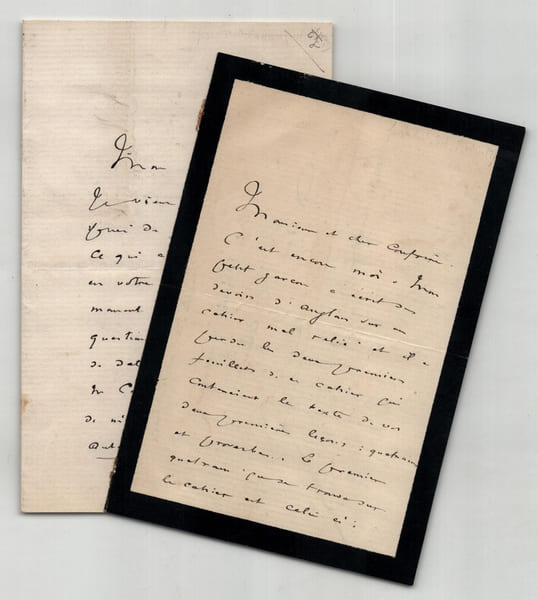 Mon
Je viens
ce qui a
en votre
Monsieur et cher Confrère.
C'est encore moi. Mon
petit garçon a écrit des
devoirs d'anglais sur un
cahier mal relié : et il a
perdu les deux premiers
feuillets de ce cahier qui
contenaient le texte de vos
deux premières leçons : quatrains
et proverbes. Le premier
quatrain qui se trouve sur
le cahier est celui ci :